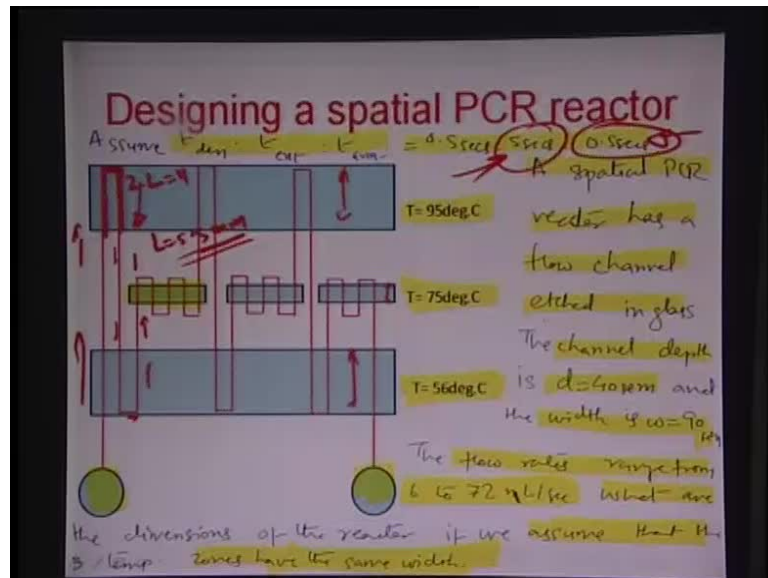 Designing a spatial PCR reactor
Assume t den. t ext. t ann. = 0.5secs 5secs 0.5secs
A spatial PCR
2L=4
L=5.3mm
T= 95deg.C
reactor has a
flow channel
T= 75deg.C
etched in glass
The channel depth
T= 56deg.C
is d=40μm and
the width is w=90
The flow rates range from
6 to 72 nL/sec what are
the dimensions of the reactor if we assume that the
3 temp. zones have the same width.